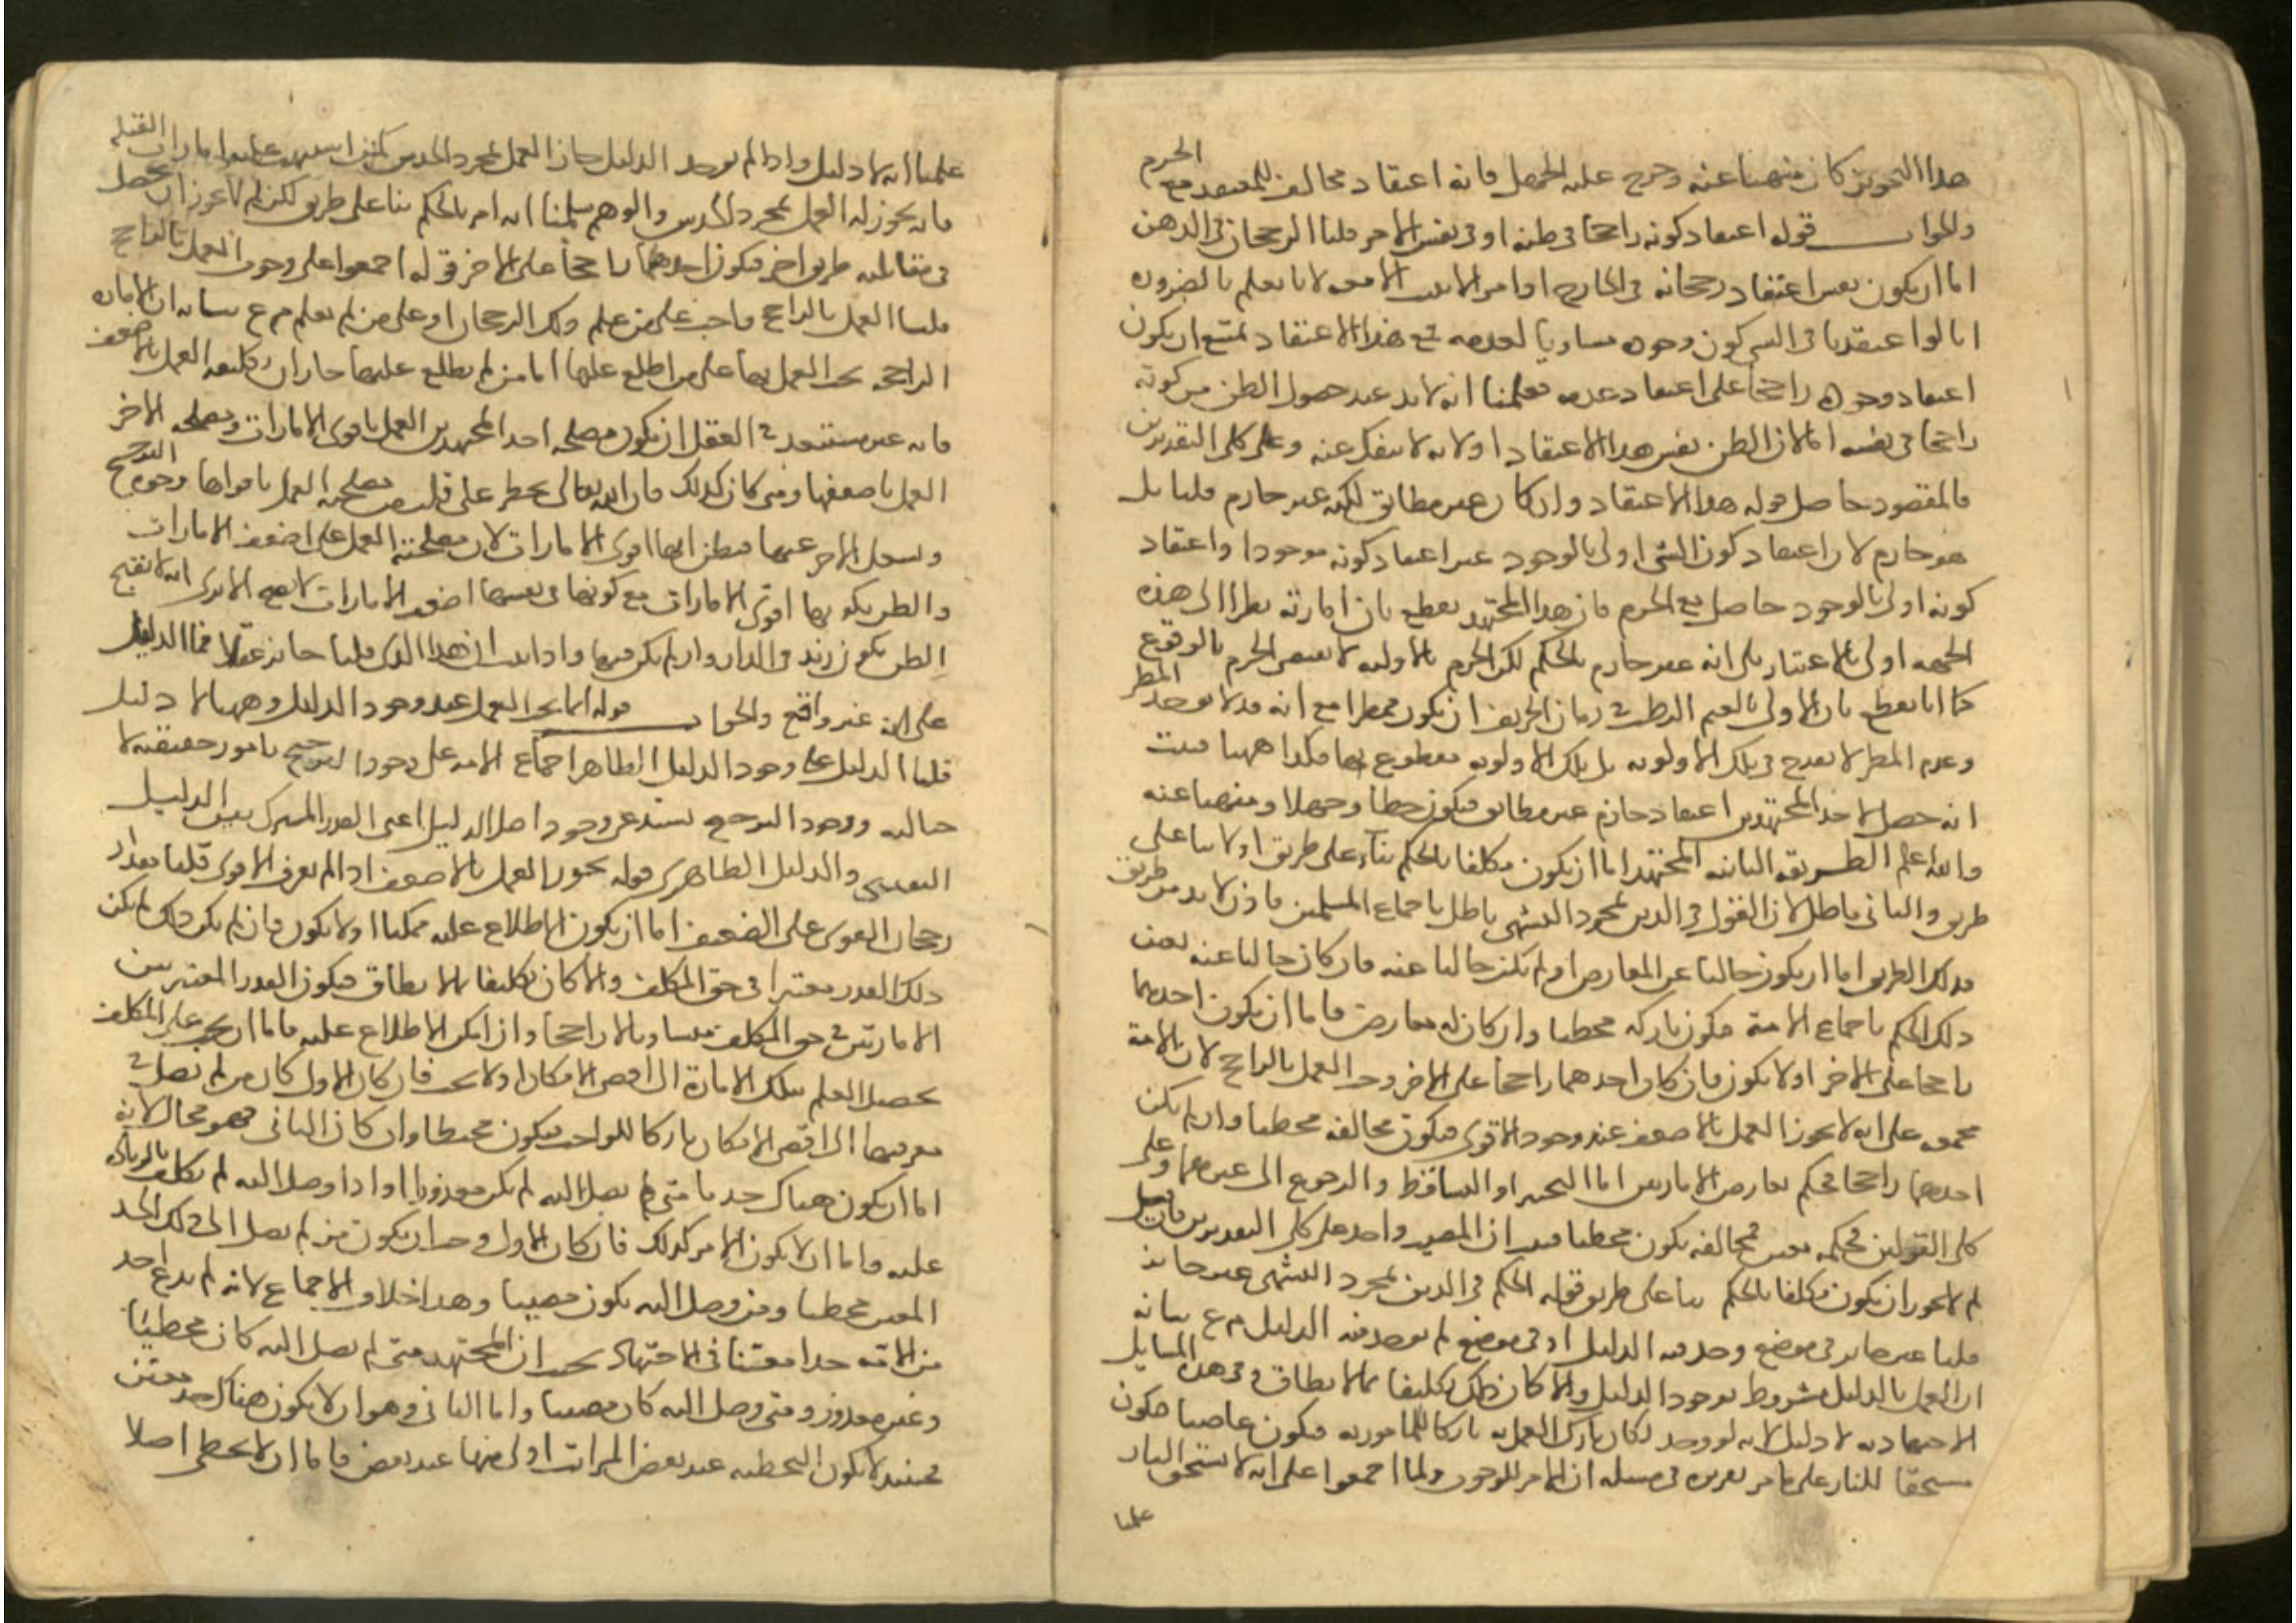 هذا التجويز كان منهيا عنه وخرج عليه الجهل فانه اعتقاد مخالف للمعتقد مع الجزم
والجواب قوله اعتقاد كونه راجحا في ظنه او في نفس الامر قلنا الرجحان في الذهن
اما ان يكون نفس اعتقاد رجحانه في الخارج او امر لا يثبت الا معه لانا نعلم بالضرورة
انا لو اعتقدنا في الشي كون وجوده مساويا لعدمه فمع هذا الاعتقاد يمتنع ان يكون
اعتقاد وجوده راجحا على اعتقاد عدمه فعلمنا انه لا بد عند حصول الظن من كونه
راجحا في نفسه اما لان الظن نفس هذا الاعتقاد او لانه لا ينفك عنه وعلى كلى التقديرين
فالمقصود حاصل قوله هذا الاعتقاد وان كان غير مطابق لكنه غير جازم قلنا بل
هو جازم لان اعتقاد كون الشي اولى بالوجود غير اعتقاد كونه موجودا واعتقاد
كونه اولى بالوجود حاصل مع الجزم فان هذا المجتهد يقطع بان امارته نظرا الى هذه
الجهه اولى بالاعتبار بلى انه غير جازم بالحكم لكن الجزم بالاولية لا يقتضي الجزم بالوقوع
كما انا نقطع بان الاولى بالغيم الرطب في زمان الخريف ان يكون ممطرا مع انه قد لا يوجد المطر
وعدم المطر لا يقدح في تلك الاولوية بل تلك الاولوية مقطوع بها فكذا ههنا فثبت
انه حصل لاحد المجتهدين اعتقاد جازم غير مطابق فيكون خطأ وجهلا ومنهيا عنه
والله اعلم الطريقه الثانيه المجتهد اما ان يكون مكلفا بالحكم بناء على طريق او لا بناء على
طريق والثاني باطل لان القول في الدين بمجرد التشهي باطل باجماع المسلمين فاذن لا بد من طريق
فذلك الطريق اما ان يكون خاليا عن المعارض او لم يكن خاليا عنه فان كان خاليا عنه تعين
ذلك الحكم باجماع الامة فيكون تاركه مخطيا وان كان له معارض فاما ان يكون احدهما
راجحا على الاخر او لا يكون فان كان احدهما راجحا على الاخر وجب العمل بالراجح لان الامة
مجمعه على انه لا يجوز العمل بالاضعف عند وجود الاقوى فيكون مخالفه مخطيا وان لم يكن
احدهما راجحا فحكم تعارض الامارتين اما التخيير او التساقط والرجوع الى غيرهما وعلى
كلى القولين فحكمه معين فمخالفه يكون مخطيا فثبت ان المصيب واحد على كلى التقديرين فان قيل
لم لا يجوز ان يكون مكلفا بالحكم بناء على طريق قوله الحكم في الدين بمجرد التشهي غير جائز
قلنا غير جائز في موضع وجد فيه الدليل او في موضع لم يوجد فيه الدليل م ع بيانه
ان العمل بالدليل مشروط بوجود الدليل والا كان ذلك تكليفا بما لا يطاق وفي هذه المسايل
الاجتهادية لا دليل لانه لو وجد لكان تارك العمل به تاركا للمامور به فيكون عاصيا فيكون
مستحقا للنار على ما مر تقريره في مسئله ان الامر للوجوب ولما اجمعوا على انه لا يستحق النار
علمنا
علمنا انه لا دليل واذا لم يوجد الدليل جاز العمل بمجرد الحدس كمن اشتبهت عليه امارات القبلة
فانه يجوز له العمل بمجرد الحدس والوهم سلمنا انه امر بالحكم بناء على طريق لكن لم لا يجوز ان يحصل
في مقابلته طريق اخر فيكون احدهما راجحا على الاخر قوله اجمعوا على وجوب العمل بالراجح
قلنا العمل بالراجح واجب على من علم ذلك الرجحان او على من لم يعلم م ع بيانه ان الامارة
الراجحة يجب العمل بها على من اطلع عليها اما من لم يطلع عليها جاز ان تكليفه العمل بالاضعف
فانه غير مستبعد في العقل ان يكون مصلحة احد المجتهدين العمل باقوى الامارات ومصلحة الاخر
العمل باضعفها ومتى كان كذلك فان الله تعالى يخطر على قلب من مصلحته العمل باقواها وجوه الترجيح
ويشغل الاخر عنها فيظن انها اقوى الامارات لان مصلحته العمل على اضعف الامارات
والظن بكونها اقوى الامارات مع كونها في نفسها اضعف الامارات لا يقبح الا ترى انه لا يقبح
الظن بكون زيد في الدار وان لم يكن فيها واذا ثبت ان هذا الذي قلنا جائز عقلا فما الدليل
على انه غير واقع والجواب قوله انما يجب العمل عند وجود الدليل وههنا لا دليل
قلنا الدليل على وجود الدليل الظاهر اجماع الامه على وجود الترجيح بامور حقيقيه لا
خياليه ووجود الترجيح يستدعي وجود اصل الدليل اعني القدر المشترك بين الدليل
اليقيني والدليل الظاهري قوله يجوز العمل بالاضعف اذا لم يعرف الاقوى قلنا مقدار
رجحان القوى على الضعيف اما ان يكون الاطلاع عليه ممكنا او لا يكون فان لم يكن ذلك لم يكن
ذلك القدر معتبرا في حق المكلف والا كان تكليفا بما لا يطاق فيكون القدر المعتبر بين
الامارتين في حق المكلف متساويا لا راجحا وان امكن الاطلاع عليه فاما ان يجب على المكلف
تحصيل العلم بتلك الامارة الى اقصى الامكان او لا يجب فان كان الاول كان من لم يصل في
معرفتها الى اقصى الامكان تاركا للواجب فيكون مخطئا وان كان الثاني فهو محال لانه
اما ان يكون هناك حد ما متى لم يصل اليه لم يكن معذورا او اذا وصل اليه لم يكلف بالزيادة
عليه واما ان لا يكون الامر كذلك فان كان الاول وجب ان يكون من لم يصل الى ذلك الحد
المعين مخطيا ومن وصل اليه يكون مصيبا وهذا خلاف الاجماع لانه لم يدع احد
من الامه حدا معينا في الاجتهاد بحيث ان المجتهد متى لم يصل اليه كان مخطيئا
وغير معذور ومتى وصل اليه كان مصيبا واما الثاني وهو ان لا يكون هناك حد معين
فحينئذ لا يكون التخطيه عند بعض المراتب اولى منها عند بعض فاما ان لا يخطى اصلا